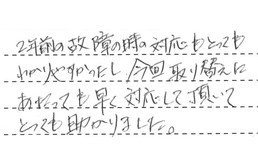 2年前の故障の時の対応もとっても
わかりやすかったし、今回取り替えに
あたっても早く対応して頂いて
とっても助かりました。